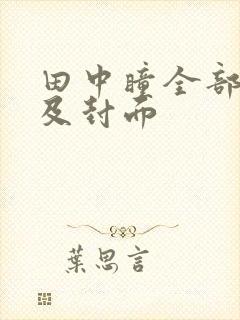 田中瞳全部
及封面
葉思言